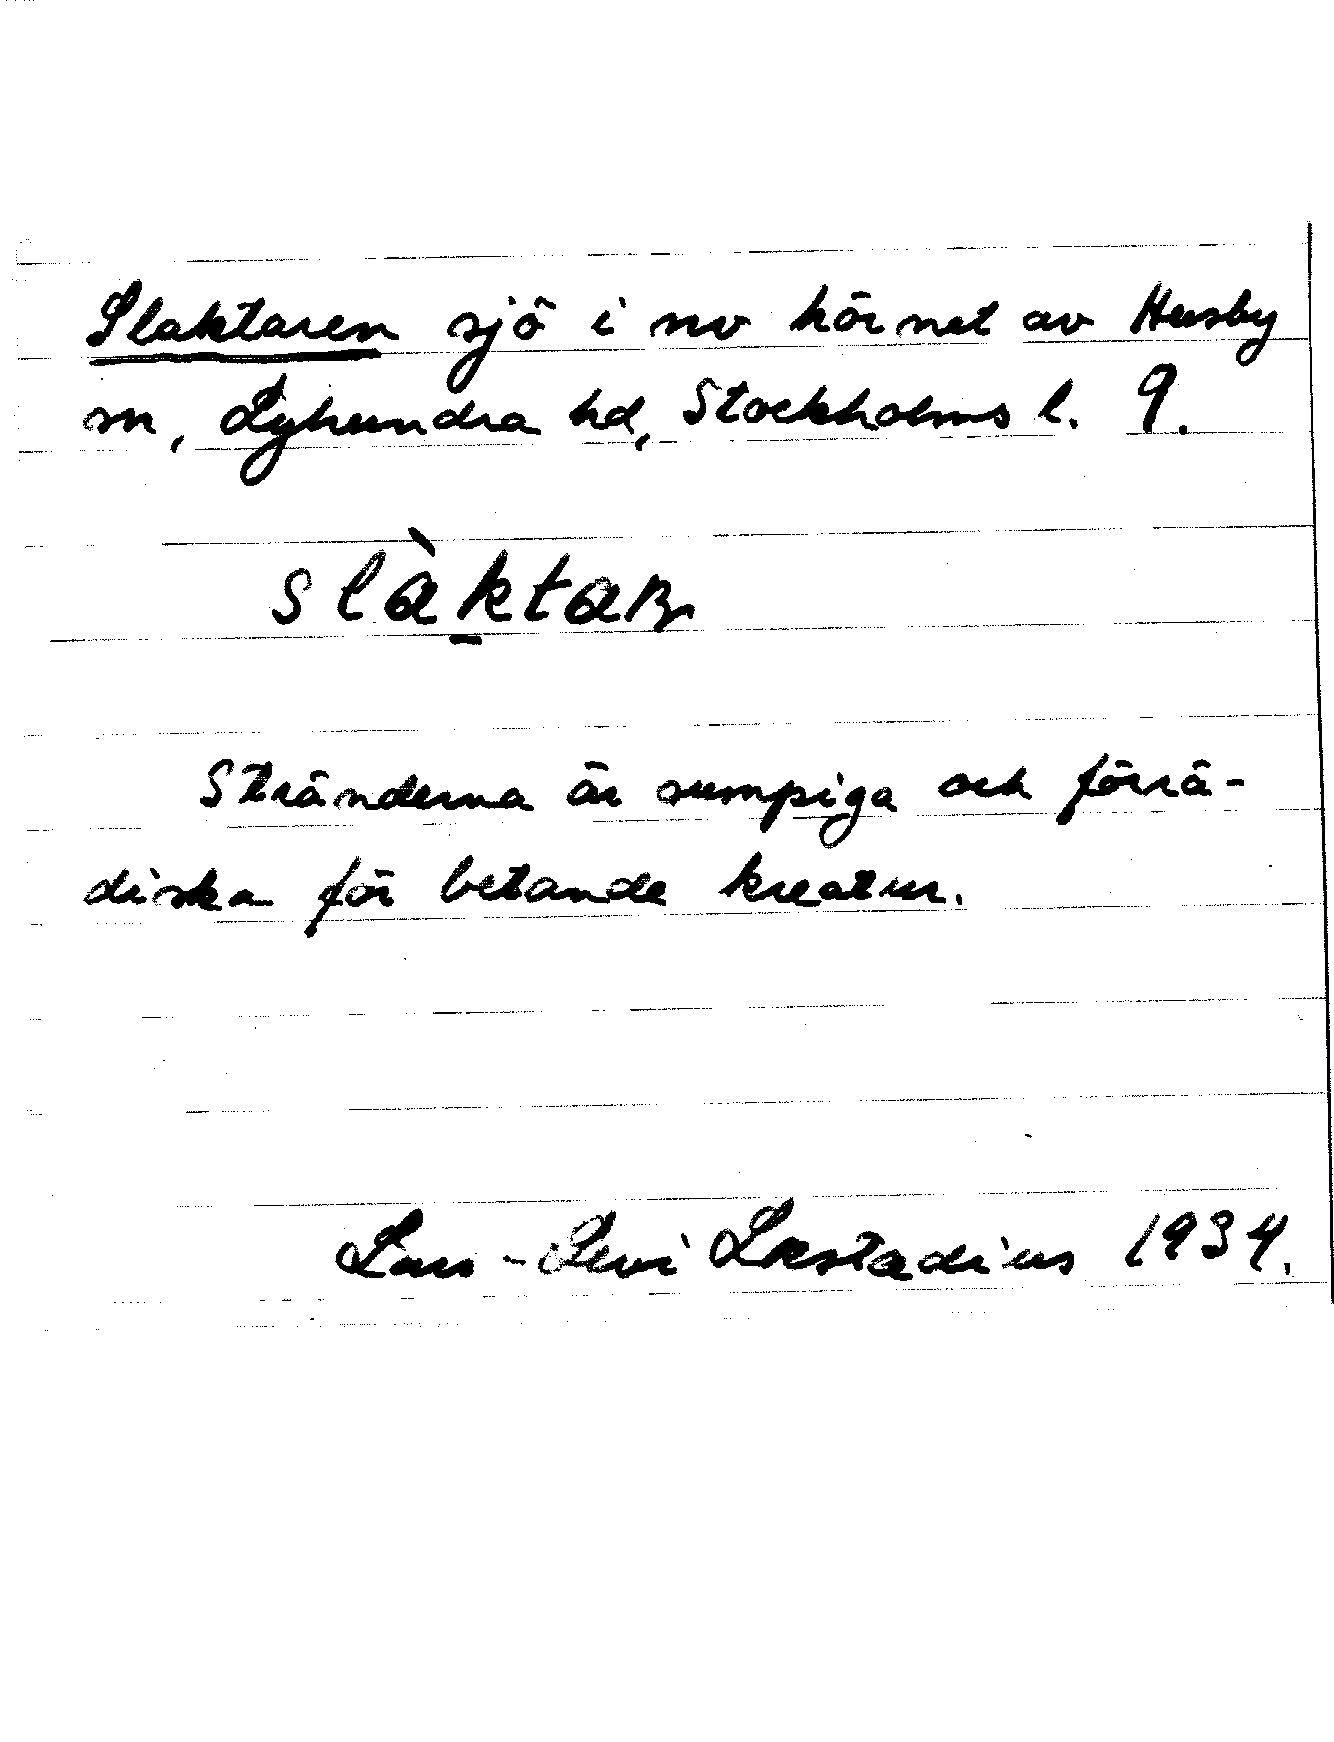 Slaktaren sjö i nv hörnet av Husby
sn, Lyhundra hd, Stockholms l. 9.
slàktaʀn
Stränderna är sumpiga och förrä-
diska för betande kreatur.
Lars-Levi Læstadius 1934.